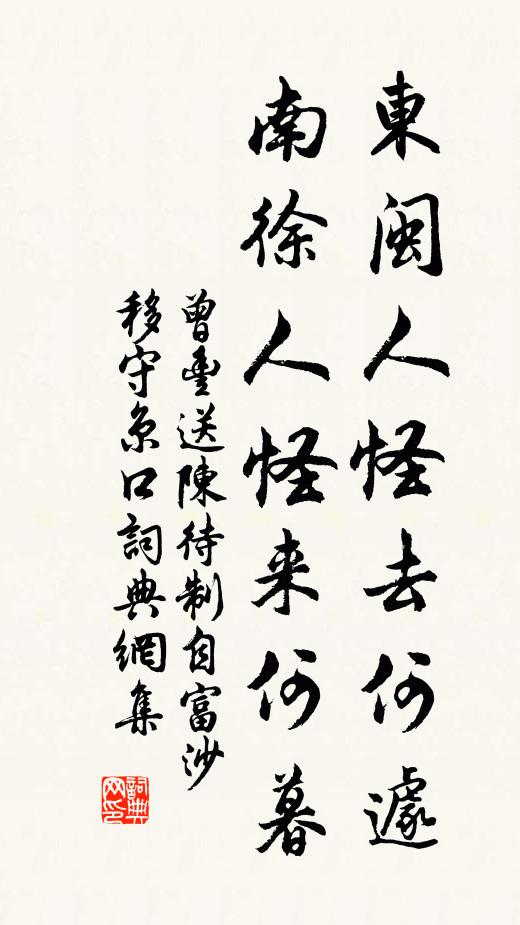 東閩人怪去何遽
南徐人怪来何暮
曾豐送陳待制自富沙
移守京口詞典網集
詞典網印